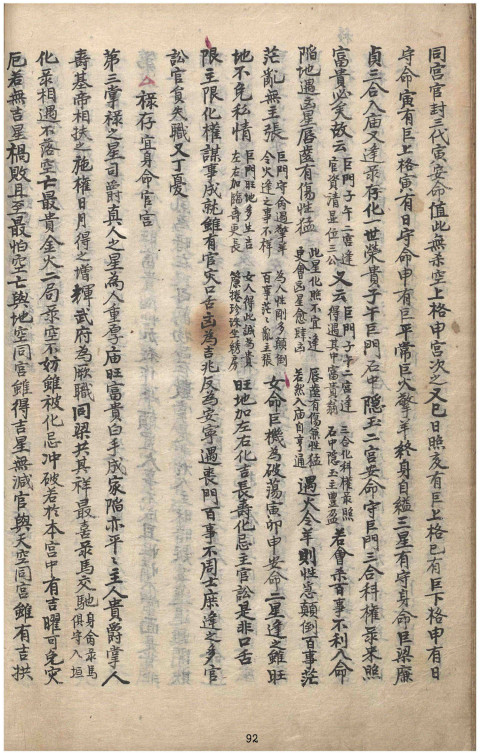 同宮官封三代寅安命值此無杀空上格申宮次之又巳日照亥有巨上格巳有巨下格申有日
守命寅有巨上格寅有日守命申有巨平常巨火擎羊終身自縊三星有守身命巨梁廉
貞三合入庙又逢录存化一世榮貴子午巨門石中隱玉二宮安命守巨門三合科權录來照
富貴必矣故云巨門子午二宮逢官資清显位三公又云巨門子午二宮逢得遇其中富貴翁三合化科權录照石中隱玉主豊盈若會杀百事不利入命
陷地遇凶星唇齒有傷性猛此星化照不宜逢更會凶星愈肆凶唇齒有傷無性猛若然入庙自亨通遇火令羊則性急顛倒百事茫
茫亂無主張巨門守命遇擎羊令火逢之事不祥為人性剛多顛倒百事茫茫亂主張女命巨機為破荡寅卯申安命二星逢之雖旺
地不免私情巨門旺地多生吉左右加臨壽更長女人得此誠為貴簾捲珍珠坐綉房旺地加左右化吉長壽化忌主官訟是非口舌
限主限化權謀事成就雖有官灾口舌凶為吉兆反為安寧遇喪門百事不周士庶逢之多官
訟官貟失職又丁憂
禄存宜身命官宮
第三掌禄之星司爵真人之星為人重厚庙旺富貴白手成家陷亦平平主人貴爵掌人
壽基帝相扶之施權日月得之增輝武府為厥職同梁共其祥最喜录馬交馳身命录馬俱守入垣
化录相遇不落空亡最貴金火二局录空不妨雖被化忌冲破若於本宮中有吉曜可免灾
厄若無吉星禍敗且至最怕空亡與地空同宮雖得吉星無減官與天空同宮雖有吉拱
92